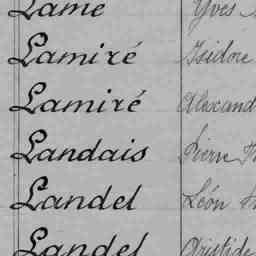 Lame Yves
Lamiré Isidore
Lamiré Alexand
Landais Pierre
Landel Léon
Landel Aristide